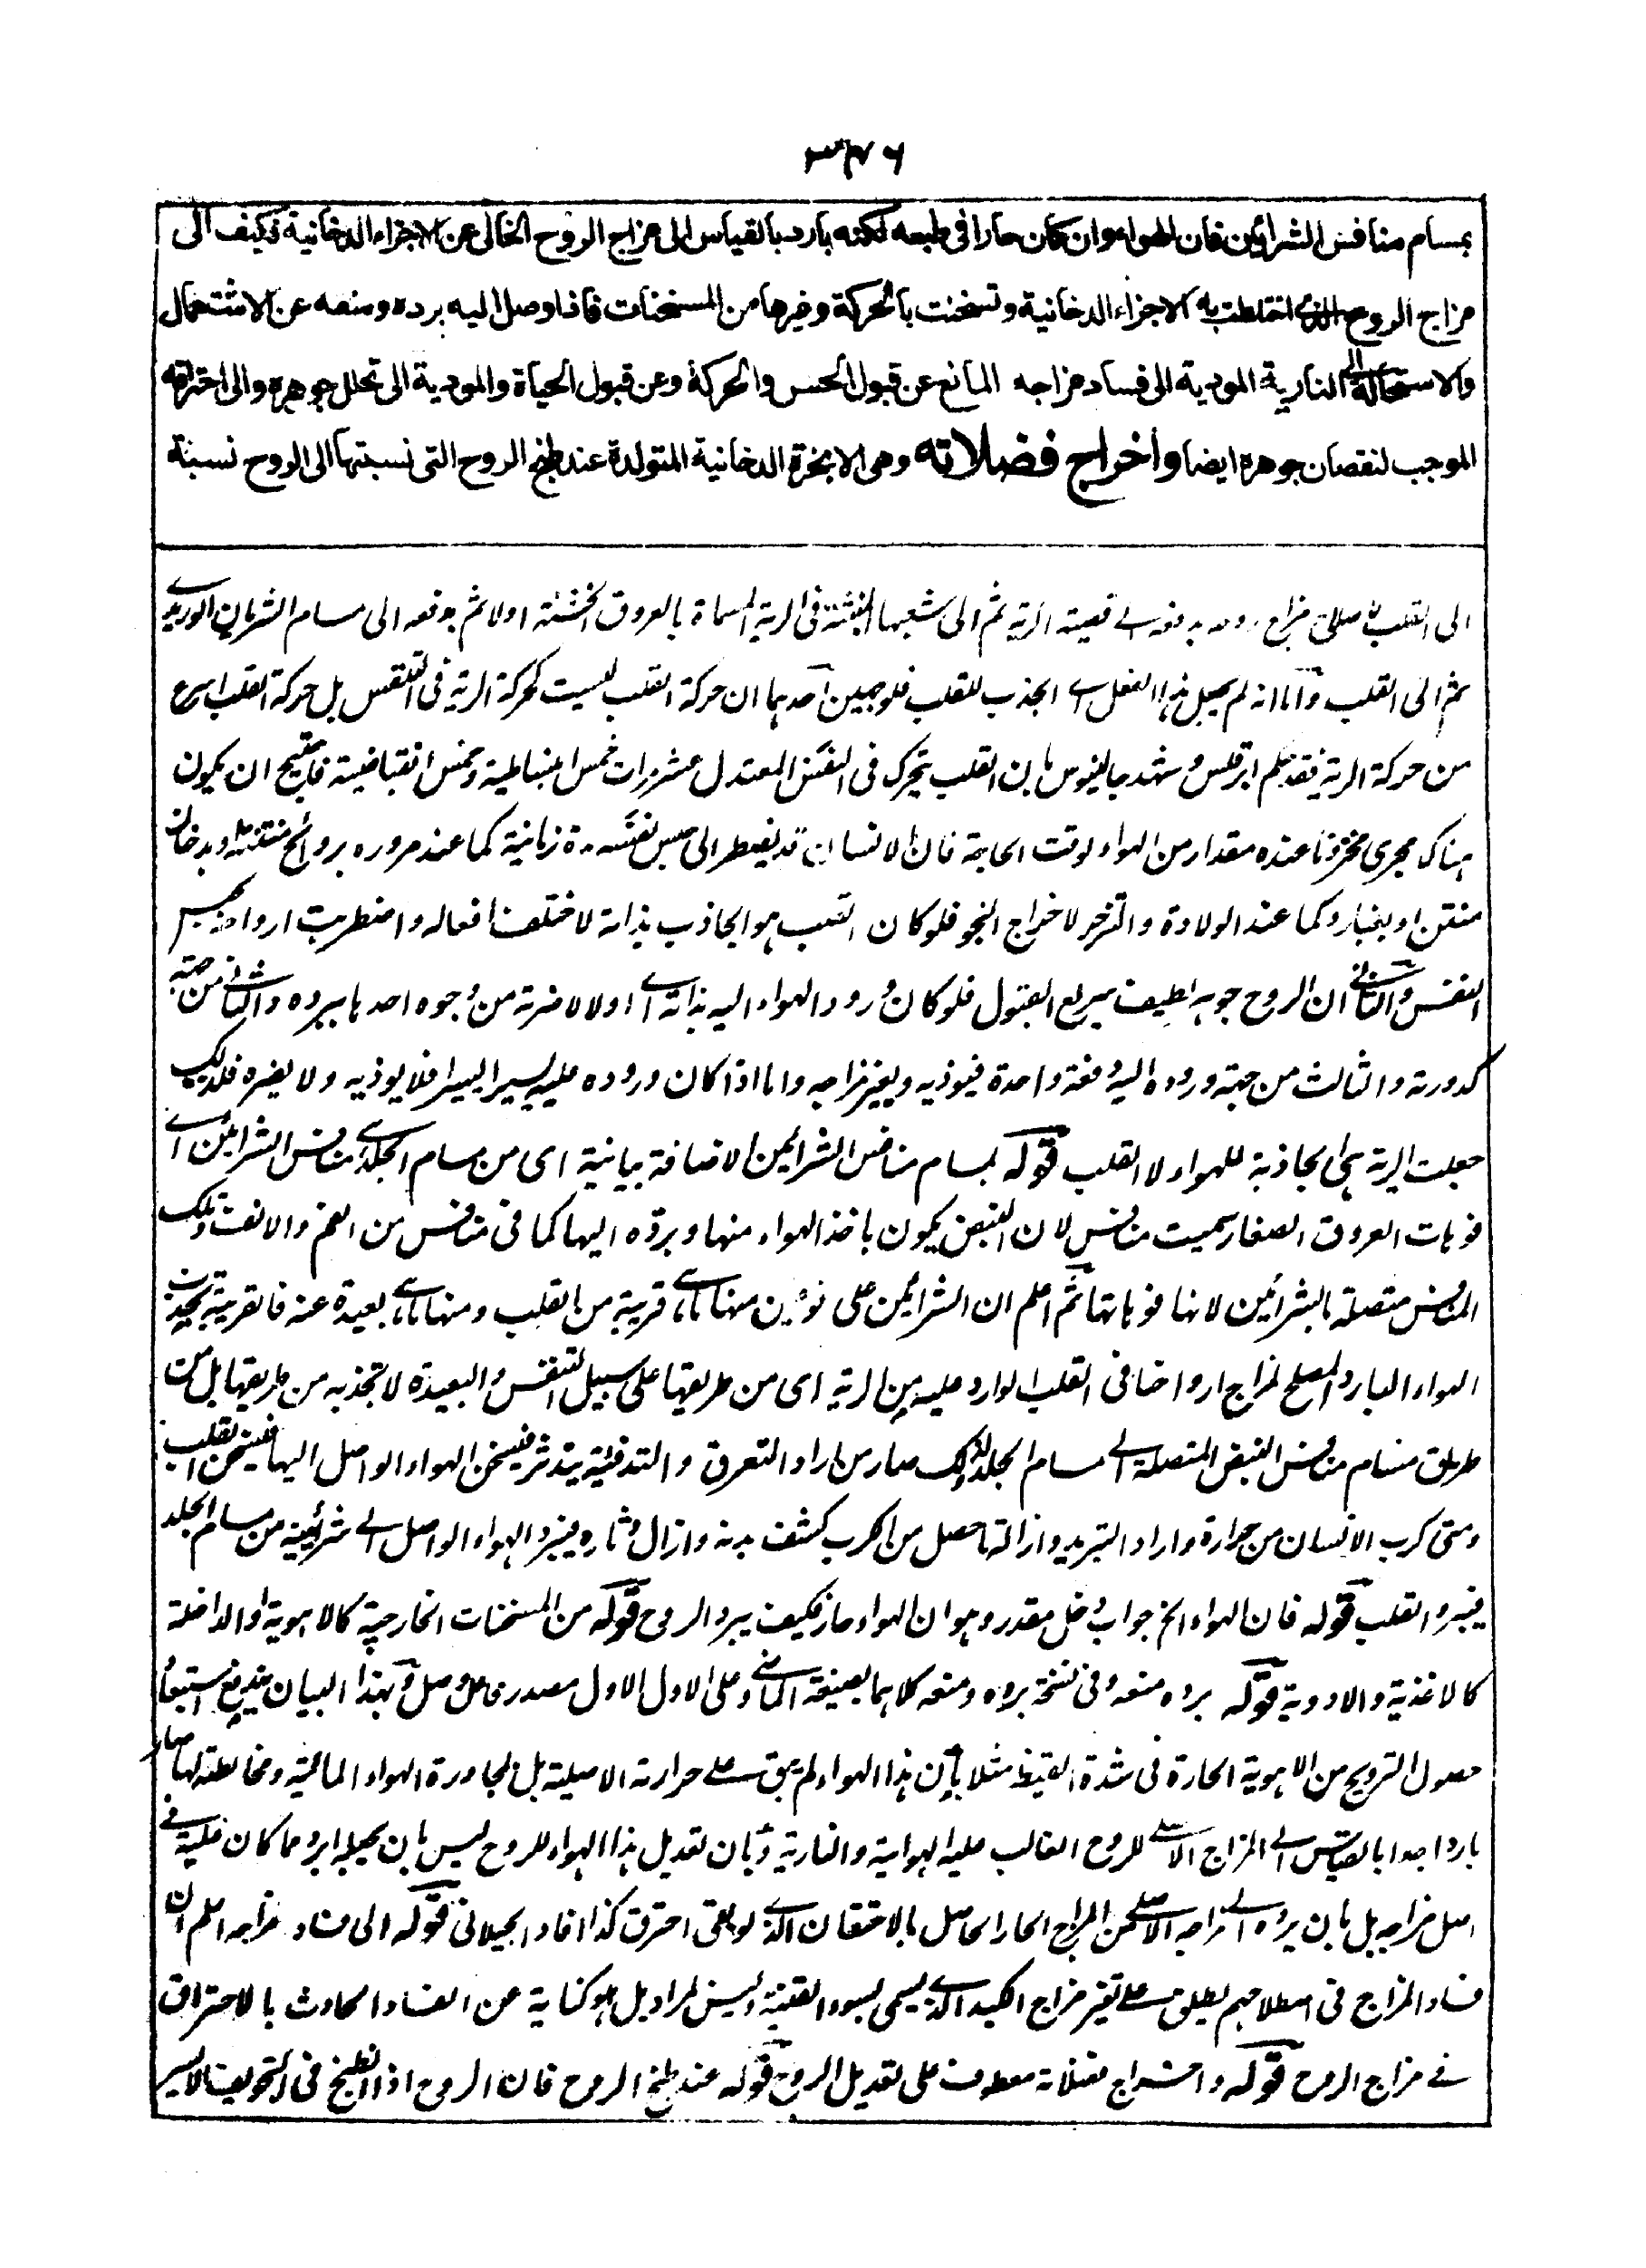 ٣٤٦
بمسام منافس الشرائين فان الهواء وان كان حارا فى طبعه لكنه بارد بالقياس الى مزاج الروح الخالى عن الاجزاء الدخانية فكيف الى
مزاج الروح الذى اختلطت به الاجزاء الدخانية وتسخنت بالحركة وغيرها من المسخنات فاذا وصل اليه برده ومنعه عن الاشتعال
والاستحالة الى النارية المودية الى فساد مزاجه المانع عن قبول الحس والحركة وعن قبول الحياة والمودية الى تحلل جوهره والى احتراقه
الموجب لنقصان جوهره ايضا واخراج فضلاته وهى الابخرة الدخانية المتولدة عند طبخ الروح التى نسبتها الى الروح نسبة
الى القلب لاصلاح مزاج روحه يدفعه الى قصبة الرية ثم الى شعبها المنبثة فى الرية المسماة بالعروق الخشنة اولا ثم يدفعه الى مسام الشريان الوريدى
ثم الى القلب وانما انه لم يجعل هذا الفعل اى الجذب للقلب فلوجهين احدهما ان حركة القلب ليست كحركة الرية فى التنفس بل حركة القلب اسرع
من حركة الرية فقد علم ابرقلس وشهد جالينوس بان القلب يتحرك فى النفس المعتدل عشر مرات خمس انبساطية وخمس انقباضية فاحتيج ان يكون
هناك مجرى مخزونا عنده مقدار من الهواء لوقت الحاجة فان الانسان قد يضطر الى حبس نفسه مدة زمانية كما عند مروره بروائح منتنة وبدخان
منتن او بغبار وكما عند الولادة والتزحر لاخراج النجو فلو كان القلب هو الجاذب بذاته لاختلف افعاله واضطربت ارواحه بحبس
النفس والثانى ان الروح جوهر لطيف سريع القبول فلو كان ورود الهواء اليه بذاته اى اولا لاضرته من وجوه احدها ببرده والثانى من جهة
كدورته والثالث من جهة وروده اليه دفعة واحدة فيوذيه ويغير مزاجه واما اذا كان وروده عليه يسيرا يسيرا فلا يوذيه ولا يضره فلذلك
جعلت الرية هى الجاذبة للهواء لا القلب قوله بمسام منافس الشرائين الاضافة بيانية اى من مسام الجلد اى منافس الشرائين اى
فوهات العروق الصغار سميت منافس لان النبض يكون باخذ الهواء منها وبرده اليها كما فى منافس من الفم والانف وتلك
المنافس متصلة بالشرائين لانها فوهاتها ثم اعلم ان الشرائين على نوعين منها ما هى قريبة من القلب ومنها ما هى بعيدة عنه فالقريبة تجذب
الهواء البارد المصلح لمزاج ارواحنا فى القلب الوارد عليه من الرية اى من طريقها على سبيل التنفس والبعيدة لا تجذبه من طريقها بل من
طريق مسام منافس النبض المتصلة الى مسام الجلد ولذلك صار من اراد التعرق والتدفية يتدثر فيسخن الهواء الواصل اليها فيسخن القلب
ومتى كرب الانسان من حرارة واراد التبريد وازالة ما حصل من الكرب كشف بدنه وازال دثاره فيبرد الهواء الواصل الى شرائينه من مسام الجلد
فيبرد القلب قوله فان الهواء الخ جواب دخل مقدر وهو ان الهواء حار فكيف يبرد الروح قوله من المسخنات الخارجية كالاهوية او الداخلة
كالاغذية والادوية قوله برده منعه وفى نسخة برده ومنعه كلاهما بصيغة الماضى وعلى الاول الاول مصدر فاعل وصل وبهذا البيان يندفع استبعاد
حصول الترويح من الاهوية الحارة فى شدة القيظ مثلا بان هذا الهواء لم يبق على حرارته الاصلية بل لمجاورة الهواء المائية ومخالطته لها صار
باردا جدا بالقياس الى المزاج الاصلى للروح الغالب عليه الهوائية والنارية وبان تعديل هذا الهواء للروح ليس بان يجعله ابرد مما كان عليه فى
اصل مزاجه بل بان يرده الى مزاجه الاصلى من المزاج الحار الحاصل بالاحتقان الذى لو بقى احترق كذا افاد الجيلانى قوله الى فساد مزاجه اعلم ان
فساد المزاج فى اصطلاحهم يطلق على تغير مزاج الكبد الذى يسمى بسوء القنية وليس المراد بل هو كناية عن الفساد الحادث بالاحتراق
فى مزاج الروح قوله واخراج فضلاته معطوف على تعديل الروح قوله عند طبخ الروح فان الروح اذا انطبخ فى التجويف الايسر